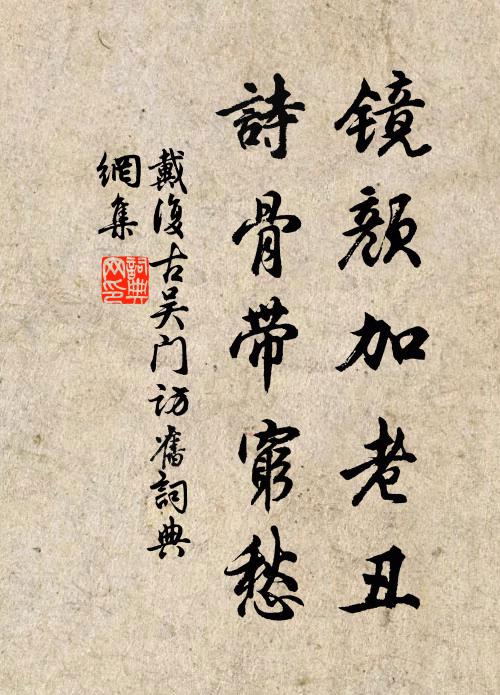 镜颜加老丑
詩骨带窮愁
戴復古吴门访舊詞典
網集
詞典
网印